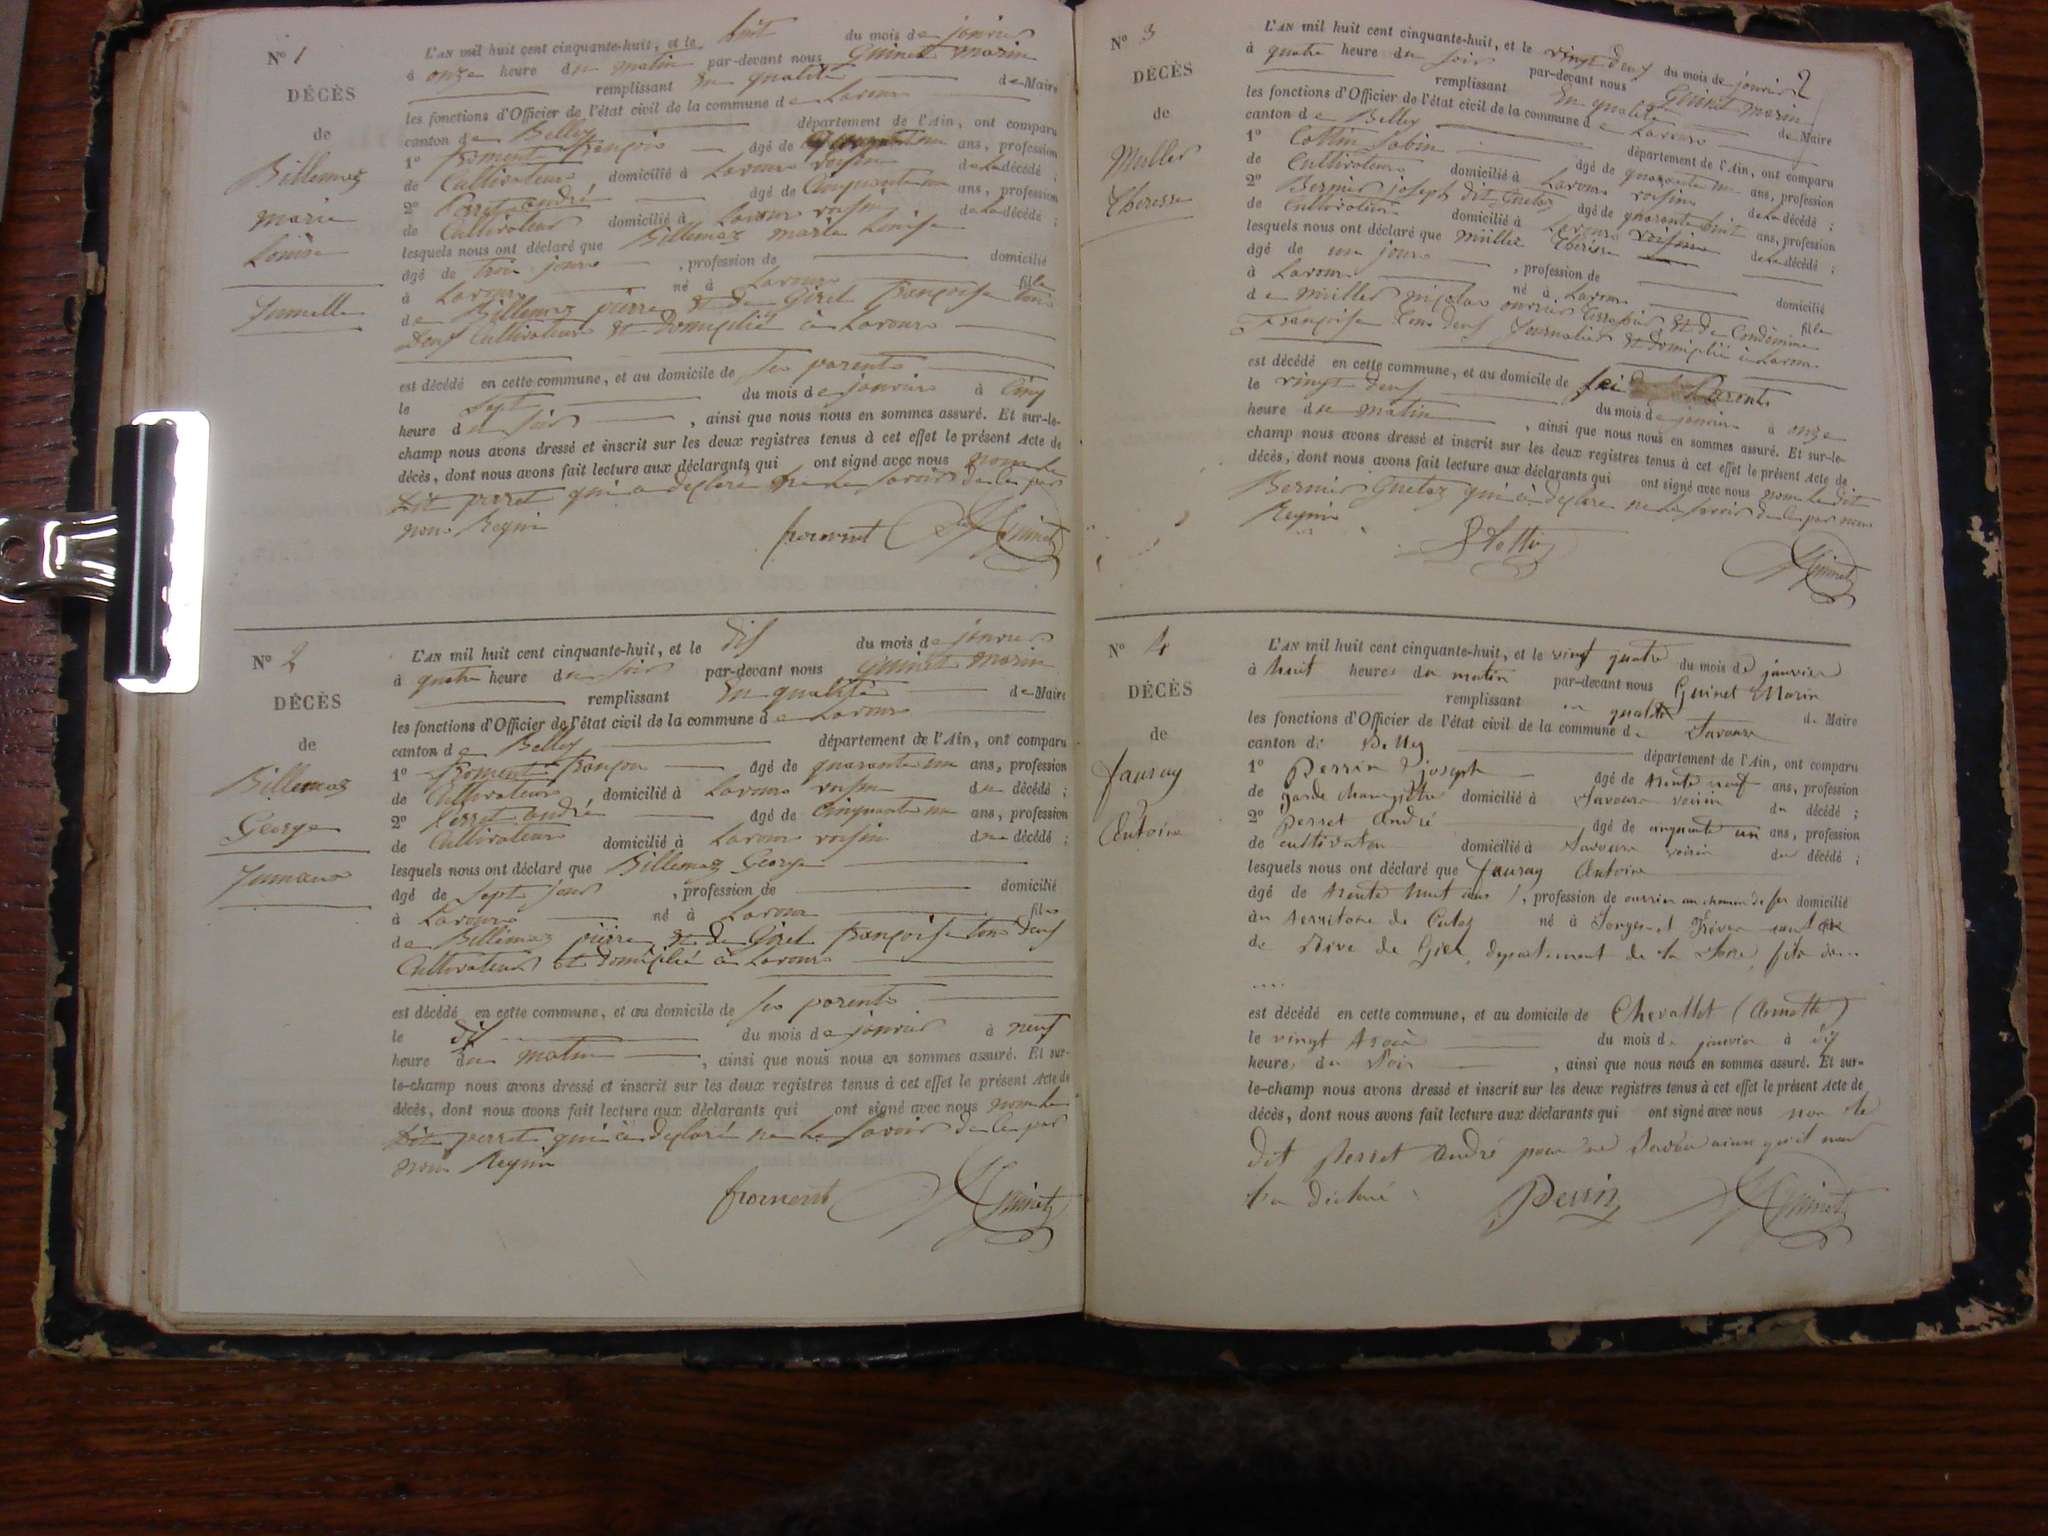 N° 1
DÉCÈS
de
Billemaz
marie
Louise
Jumelle
L'AN mil huit cent cinquante-huit, et le huit du mois de janvier
à onze heure du matin par-devant nous Guinet marin
remplissant En qualité de Maire
les fonctions d'Officier de l'état civil de la commune de Lavours
canton de Belley département de l'Ain, ont comparu
1° froment françois âgé de quarante un ans, profession
de Cultivateur domicilié à Lavours voisin de La décédé ;
2° Perret andré âgé de Cinquante un ans, profession
de Cultivateur domicilié à Lavours voisin de La décédé ;
lesquels nous ont déclaré que Billemaz marie Louise
âgé de trois jours , profession de domicilié
à Lavours né à Lavours fille
de Billemaz pierre et de Girel françoise tous
deux Cultivateurs et Domicilié à Lavours
est décédé en cette commune, et au domicile de ses parents
le sept du mois de janvier à Cinq
heure du soir , ainsi que nous nous en sommes assuré. Et sur-le-
champ nous avons dressé et inscrit sur les deux registres tenus à cet effet le présent Acte de
décès, dont nous avons fait lecture aux déclarants qui ont signé avec nous non Le
dit perret qui a déclaré ne Le savoir de Ce par
nous Requis
froment Guinet
N° 2
DÉCÈS
de
Billemaz
George
Jumeau
L'AN mil huit cent cinquante-huit, et le dix du mois de janvier
à quatre heure du soir par-devant nous Guinet marin
remplissant En qualité de Maire
les fonctions d'Officier de l'état civil de la commune de Lavours
canton de Belley département de l'Ain, ont comparu
1° froment françois âgé de quarante un ans, profession
de Cultivateur domicilié à Lavours voisin du décédé ;
2° Perret andré âgé de Cinquante un ans, profession
de Cultivateur domicilié à Lavours voisin du décédé ;
lesquels nous ont déclaré que Billemaz George
âgé de sept jours , profession de domicilié
à Lavours né à Lavours fils
de Billemaz pierre et de Girel françoise tous deux
Cultivateurs et Domicilié à Lavours
est décédé en cette commune, et au domicile de ses parents
le dix du mois de janvier à neuf
heure du matin , ainsi que nous nous en sommes assuré. Et sur-
le-champ nous avons dressé et inscrit sur les deux registres tenus à cet effet le présent Acte de
décès, dont nous avons fait lecture aux déclarants qui ont signé avec nous non Le
dit perret qui à déclaré ne Le savoir de Ce par
nous Requis
froment Guinet
2
N° 3
DÉCÈS
de
Muller
Theresse
L'AN mil huit cent cinquante-huit, et le vingt deux du mois de janvier
à quatre heure du soir par-devant nous Guinet marin
remplissant En qualité de Maire
les fonctions d'Officier de l'état civil de la commune de Lavours
canton de Belley département de l'Ain, ont comparu
1° Cottin Sabin âgé de quarante un ans, profession
de Cultivateur domicilié à Lavours voisin de La décédé ;
2° Bernier joseph dit Guetaz âgé de quarante huit ans, profession
de Cultivateur domicilié à Lavours voisin de La décédé ;
lesquels nous ont déclaré que müller Therèse
âgé de un jours , profession de domicilié
à Lavours né à Lavours fille
de müller nicolas ouvrier terrassier et de Condémine
françoise tous deux Journalier et domicilié à Lavours
est décédé en cette commune, et au domicile de Parents
le vingt deux du mois de janvier à onze
heure du matin , ainsi que nous nous en sommes assuré. Et sur-le-
champ nous avons dressé et inscrit sur les deux registres tenus à cet effet le présent Acte de
décès, dont nous avons fait lecture aux déclarants qui ont signé avec nous non Le dit
Bernier Guetaz qui à déclaré ne Le savoir de Ce par nous
Requis
Guinet
N° 4
DÉCÈS
de
fauray
Antoine
L'AN mil huit cent cinquante-huit, et le vingt quatre du mois de janvier
à huit heures du matin par-devant nous Guinet Marin
remplissant en qualité de Maire
les fonctions d'Officier de l'état civil de la commune de Lavours
canton de Belley département de l'Ain, ont comparu
1° Perrin joseph âgé de trente neuf ans, profession
de garde champêtre domicilié à Lavours voisin du décédé ;
2° Perret André âgé de cinquante un ans, profession
de cultivateur domicilié à Lavours voisin du décédé ;
lesquels nous ont déclaré que fauray Antoine
âgé de trente huit ans , profession de ouvrier au chemin de fer domicilié
au territoire de Culoz né à
de Rive de Gier, département de la Loire, fils de....
....
est décédé en cette commune, et au domicile de Chevallet (Annette)
le vingt trois du mois de janvier à dix
heures du soir , ainsi que nous nous en sommes assuré. Et sur-
le-champ nous avons dressé et inscrit sur les deux registres tenus à cet effet le présent Acte de
décès, dont nous avons fait lecture aux déclarants qui ont signé avec nous non le
dit Perret André pour ne savoir ainsi qu'il nous
l'a déclaré
Perrin Guinet